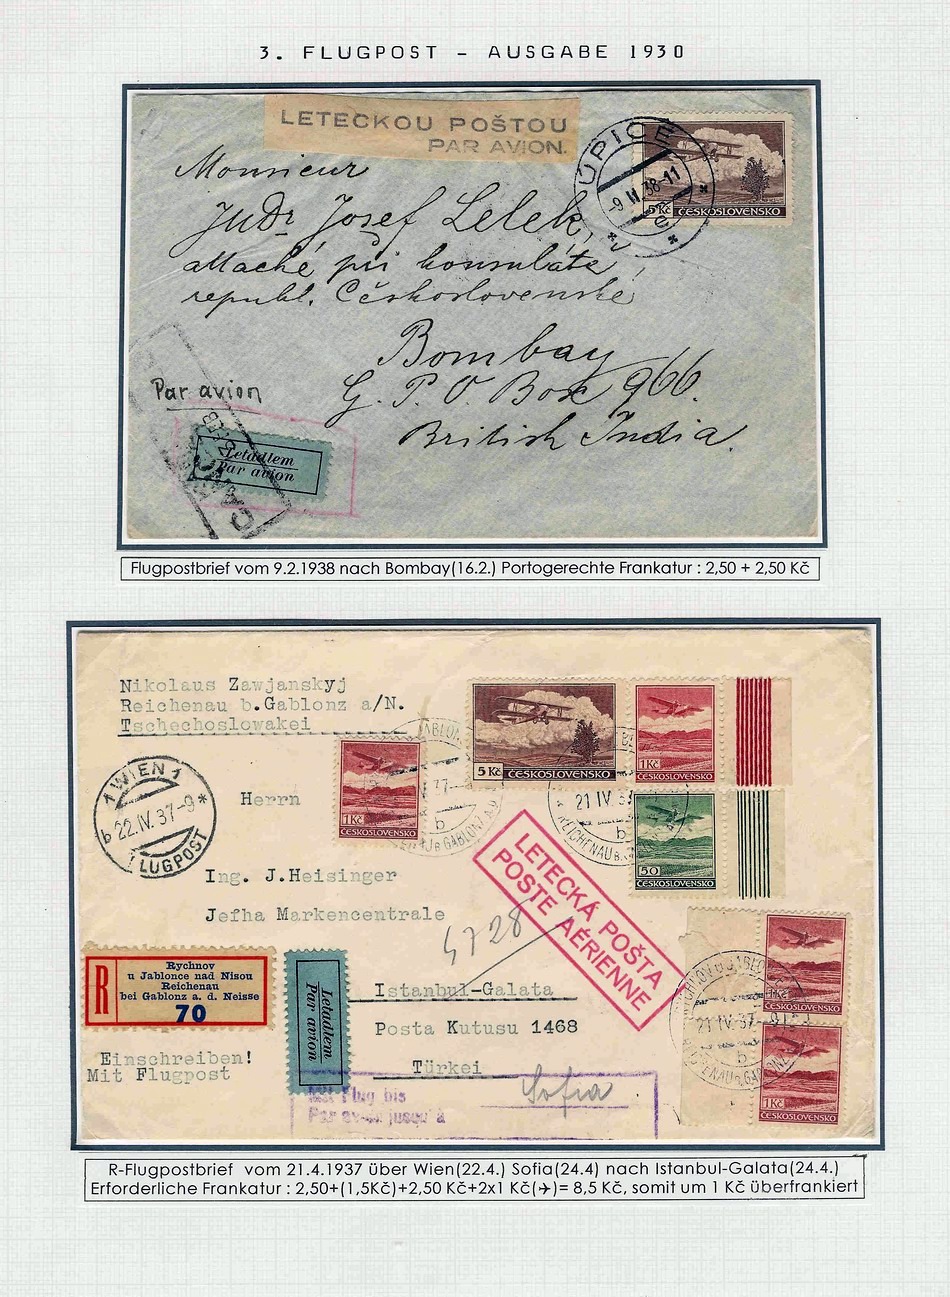 3. FLUGPOST - AUSGABE 1930
LETECKOU POŠTOU
PAR AVION.
ÚPICE
-9.II.38-11
e
5 Kč ČESKOSLOVENSKO
Monsieur
JuDr Josef Lelek,
attaché při konsulátě
republ. Československé
Bombay
G. P. O. Box 966.
British India.
Par avion
Letadlem
Par avion
Flugpostbrief vom 9.2.1938 nach Bombay(16.2.) Portogerechte Frankatur : 2,50 + 2,50 Kč
Nikolaus Zawjanskyj
Reichenau b.Gablonz a/N.
Tschechoslowakei
5 Kč ČESKOSLOVENSKO
1Kč
ČESKOSLOVENSKO
1Kč
ČESKOSLOVENSKO
50
ČESKOSLOVENSKO
21 IV. 37
b
1 WIEN 1
b 22.IV.37-9 *
FLUGPOST
Herrn
Ing. J.Heisinger
Jefha Markencentrale
4728
LETECKÁ POŠTA
POSTE AÉRIENNE
R
Rychnov
u Jablonce nad Nisou
Reichenau
bei Gablonz a. d. Neisse
70
Letadlem
Par avion
Istanbul-Galata
Posta Kutusu 1468
Türkei
Einschreiben!
Mit Flugpost
Mit Flug bis
Par avion jusqu'à
Sofia
21 IV. 37
b
ČESKOSLOVENSKO
1Kč
ČESKOSLOVENSKO
R-Flugpostbrief vom 21.4.1937 über Wien(22.4.) Sofia(24.4) nach Istanbul-Galata(24.4.)
Erforderliche Frankatur : 2,50+(1,5Kč)+2,50 Kč+2x1 Kč(✈)= 8,5 Kč, somit um 1 Kč überfrankiert